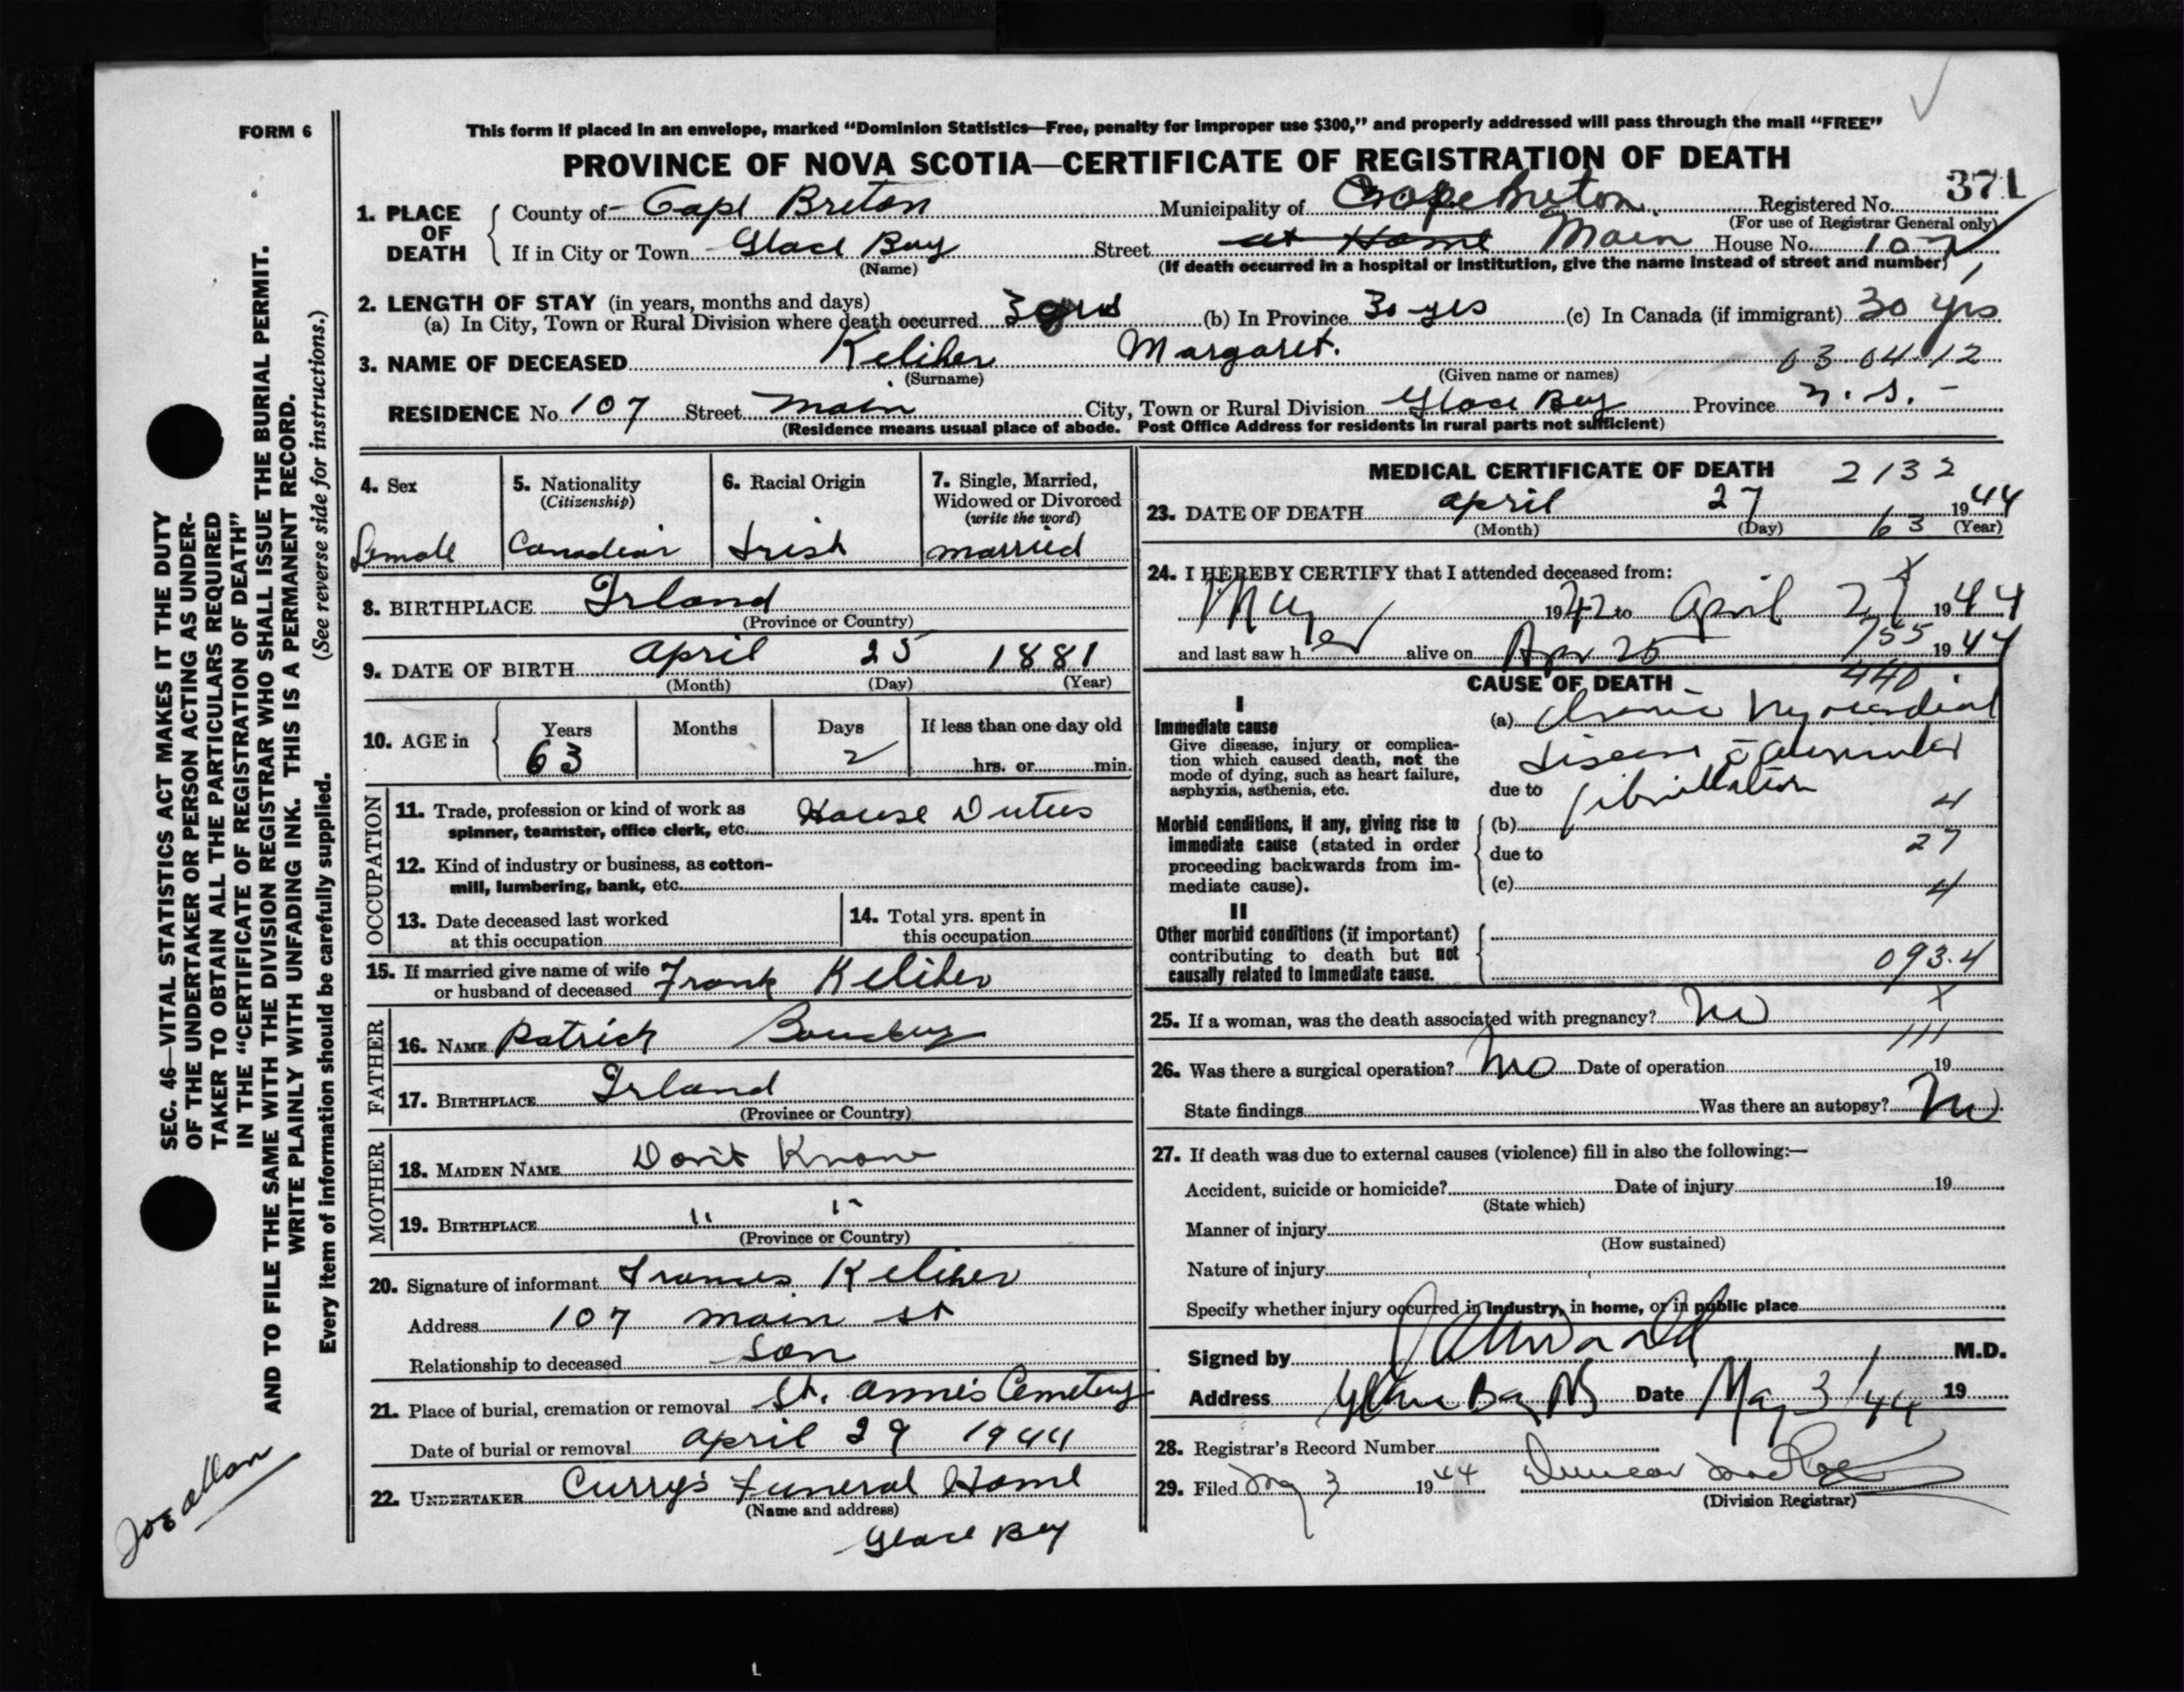 FORM 6
This form if placed in an envelope, marked “Dominion Statistics—Free, penalty for improper use $300,” and properly addressed will pass through the mail “FREE”
PROVINCE OF NOVA SCOTIA—CERTIFICATE OF REGISTRATION OF DEATH
371
1. PLACE OF DEATH
County of Cape Breton Municipality of Cape Breton Registered No.
(For use of Registrar General only)
If in City or Town Glace Bay Street at Home Main House No. 107
(Name) (If death occurred in a hospital or institution, give the name instead of street and number)
2. LENGTH OF STAY (in years, months and days)
(a) In City, Town or Rural Division where death occurred 30 yrs (b) In Province 30 yrs (c) In Canada (if immigrant) 30 yrs
3. NAME OF DECEASED Keliher Margaret. 03 04 12
(Surname) (Given name or names)
RESIDENCE No. 107 Street Main City, Town or Rural Division Glace Bay Province N.S.
(Residence means usual place of abode. Post Office Address for residents in rural parts not sufficient)
4. Sex
Female
5. Nationality
(Citizenship)
Canadian
6. Racial Origin
Irish
7. Single, Married, Widowed or Divorced
(write the word)
married
8. BIRTHPLACE Irland
(Province or Country)
9. DATE OF BIRTH April 25 1881
(Month) (Day) (Year)
10. AGE in Years Months Days If less than one day old
63 2 hrs. or min.
OCCUPATION
11. Trade, profession or kind of work as
spinner, teamster, office clerk, etc. House Duties
12. Kind of industry or business, as cotton-
mill, lumbering, bank, etc.
13. Date deceased last worked
at this occupation
14. Total yrs. spent in
this occupation
15. If married give name of wife
or husband of deceased Frank Keliher
FATHER
16. NAME Patrick
17. BIRTHPLACE Irland
(Province or Country)
MOTHER
18. MAIDEN NAME Don't Know
19. BIRTHPLACE " "
(Province or Country)
20. Signature of informant Frances Keliher
Address 107 Main St
Relationship to deceased Son
21. Place of burial, cremation or removal St. Anne's Cemetery
Date of burial or removal April 29 1944
22. UNDERTAKER Curry's Funeral Home
(Name and address)
Glace Bay
MEDICAL CERTIFICATE OF DEATH 2132
23. DATE OF DEATH April 27 1944
(Month) (Day) 63 (Year)
24. I HEREBY CERTIFY that I attended deceased from:
May 1942 to April 27 1944
and last saw her alive on Apr 25 755 1944
CAUSE OF DEATH 440
I
Immediate cause
Give disease, injury or complica-
tion which caused death, not the
mode of dying, such as heart failure,
asphyxia, asthenia, etc.
(a) Chronic Myocardial
disease c̄ auricular
due to fibrillation
Morbid conditions, if any, giving rise to
immediate cause (stated in order
proceeding backwards from im-
mediate cause).
(b) 4
due to 27
(c) 4
II
Other morbid conditions (if important)
contributing to death but not
causally related to immediate cause.
093.4
X
25. If a woman, was the death associated with pregnancy? No
111
26. Was there a surgical operation? No Date of operation 19
State findings Was there an autopsy? No
27. If death was due to external causes (violence) fill in also the following:—
Accident, suicide or homicide? Date of injury 19
(State which)
Manner of injury
(How sustained)
Nature of injury
Specify whether injury occurred in industry, in home, or in public place
Signed by M.D.
Address Glace Bay NS Date May 3/44 19
28. Registrar's Record Number
29. Filed May 3 1944 Duncan
(Division Registrar)
SEC. 46—VITAL STATISTICS ACT MAKES IT THE DUTY
OF THE UNDERTAKER OR PERSON ACTING AS UNDER-
TAKER TO OBTAIN ALL THE PARTICULARS REQUIRED
IN THE “CERTIFICATE OF REGISTRATION OF DEATH”
AND TO FILE THE SAME WITH THE DIVISION REGISTRAR WHO SHALL ISSUE THE BURIAL PERMIT.
WRITE PLAINLY WITH UNFADING INK. THIS IS A PERMANENT RECORD.
Every item of information should be carefully supplied. (See reverse side for instructions.)
Joe allan